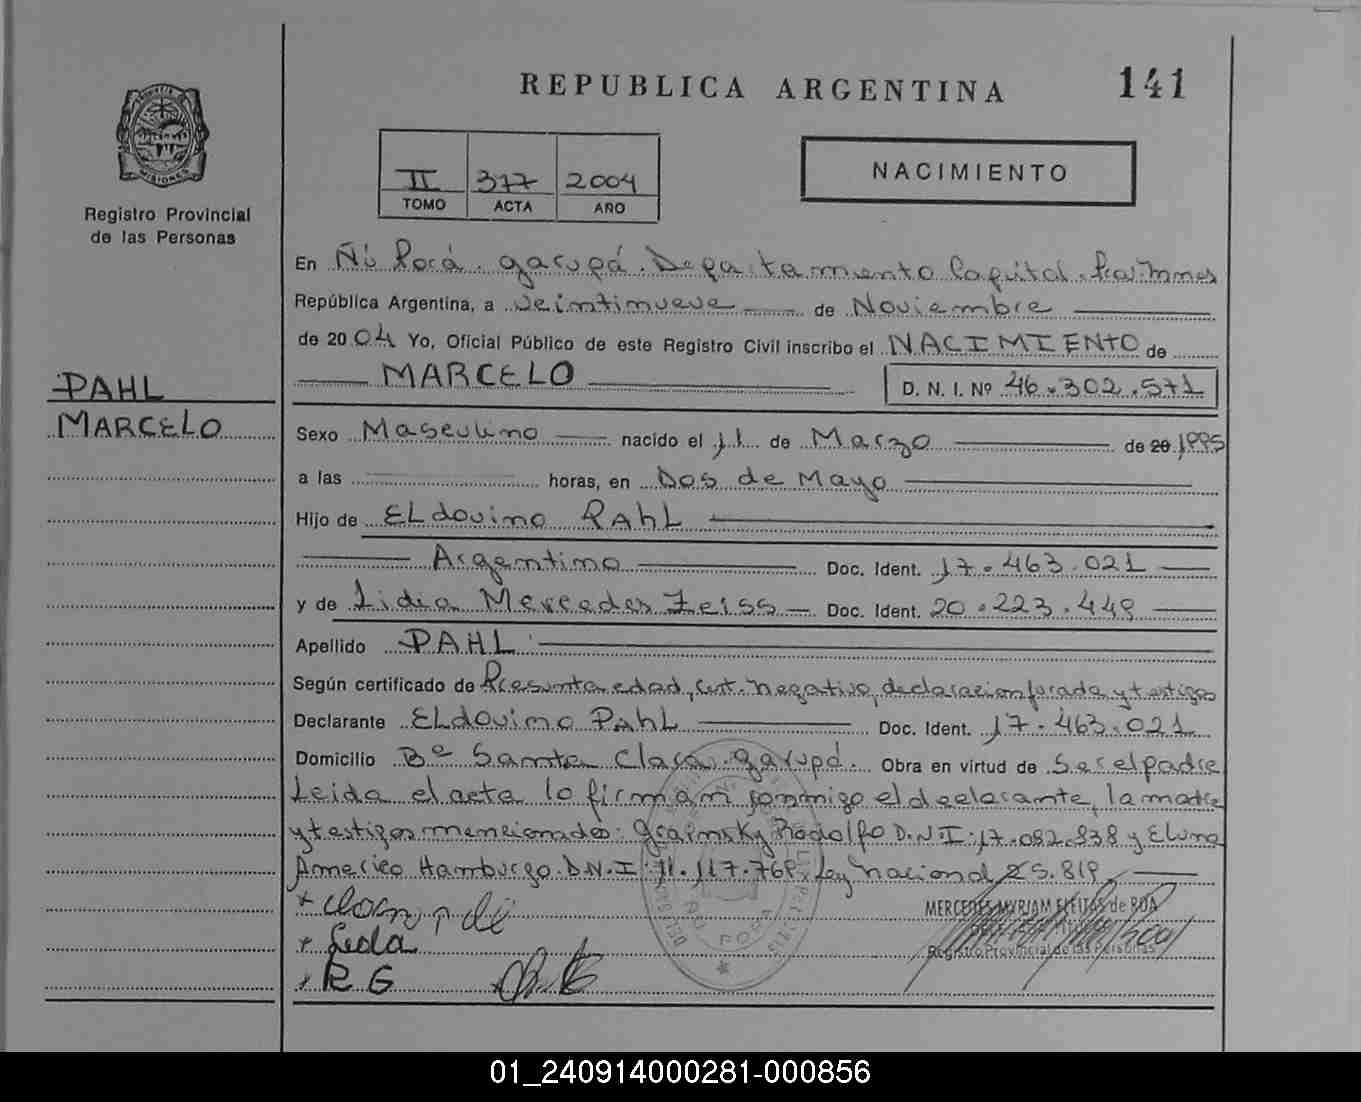 REPUBLICA ARGENTINA
141
MISIONES
Registro Provincial
de las Personas
II 377 2004
TOMO ACTA AÑO
NACIMIENTO
PAHL
MARCELO
En Ñú Porá. Garupá. Departamento Capital. Pcia. Mnes
República Argentina, a veintinueve de Noviembre
de 2004 Yo, Oficial Público de este Registro Civil inscribo el NACIMIENTO de
MARCELO D. N. I. Nº 46.302.571
Sexo Masculino nacido el 11 de Marzo de 20 1995
a las horas, en Dos de Mayo
Hijo de ELdovino PAhL
Argentino Doc. Ident. 17.463.021
y de Lidia Mercedes Zeiss Doc. Ident. 20.223.449
Apellido PAHL
Según certificado de Presunta edad, cert. negativo, declaracion jurada y testigos
Declarante ELdovino PAhL Doc. Ident. 17.463.021
Domicilio Bº Santa Clara. Garupá. Obra en virtud de Ser el padre
Leida el acta lo firman conmigo el declarante, la madre
y testigos mencionados: Grainsky Rodolfo D.N.I: 17.082.838 y Eluno
Americo Hamburgo. D.N.I: 11.117.769. Ley Nacional 25.819
MERCEDES MYRIAM FLEITAS de ROA
Registro Provincial de las Personas
R G
01_240914000281-000856